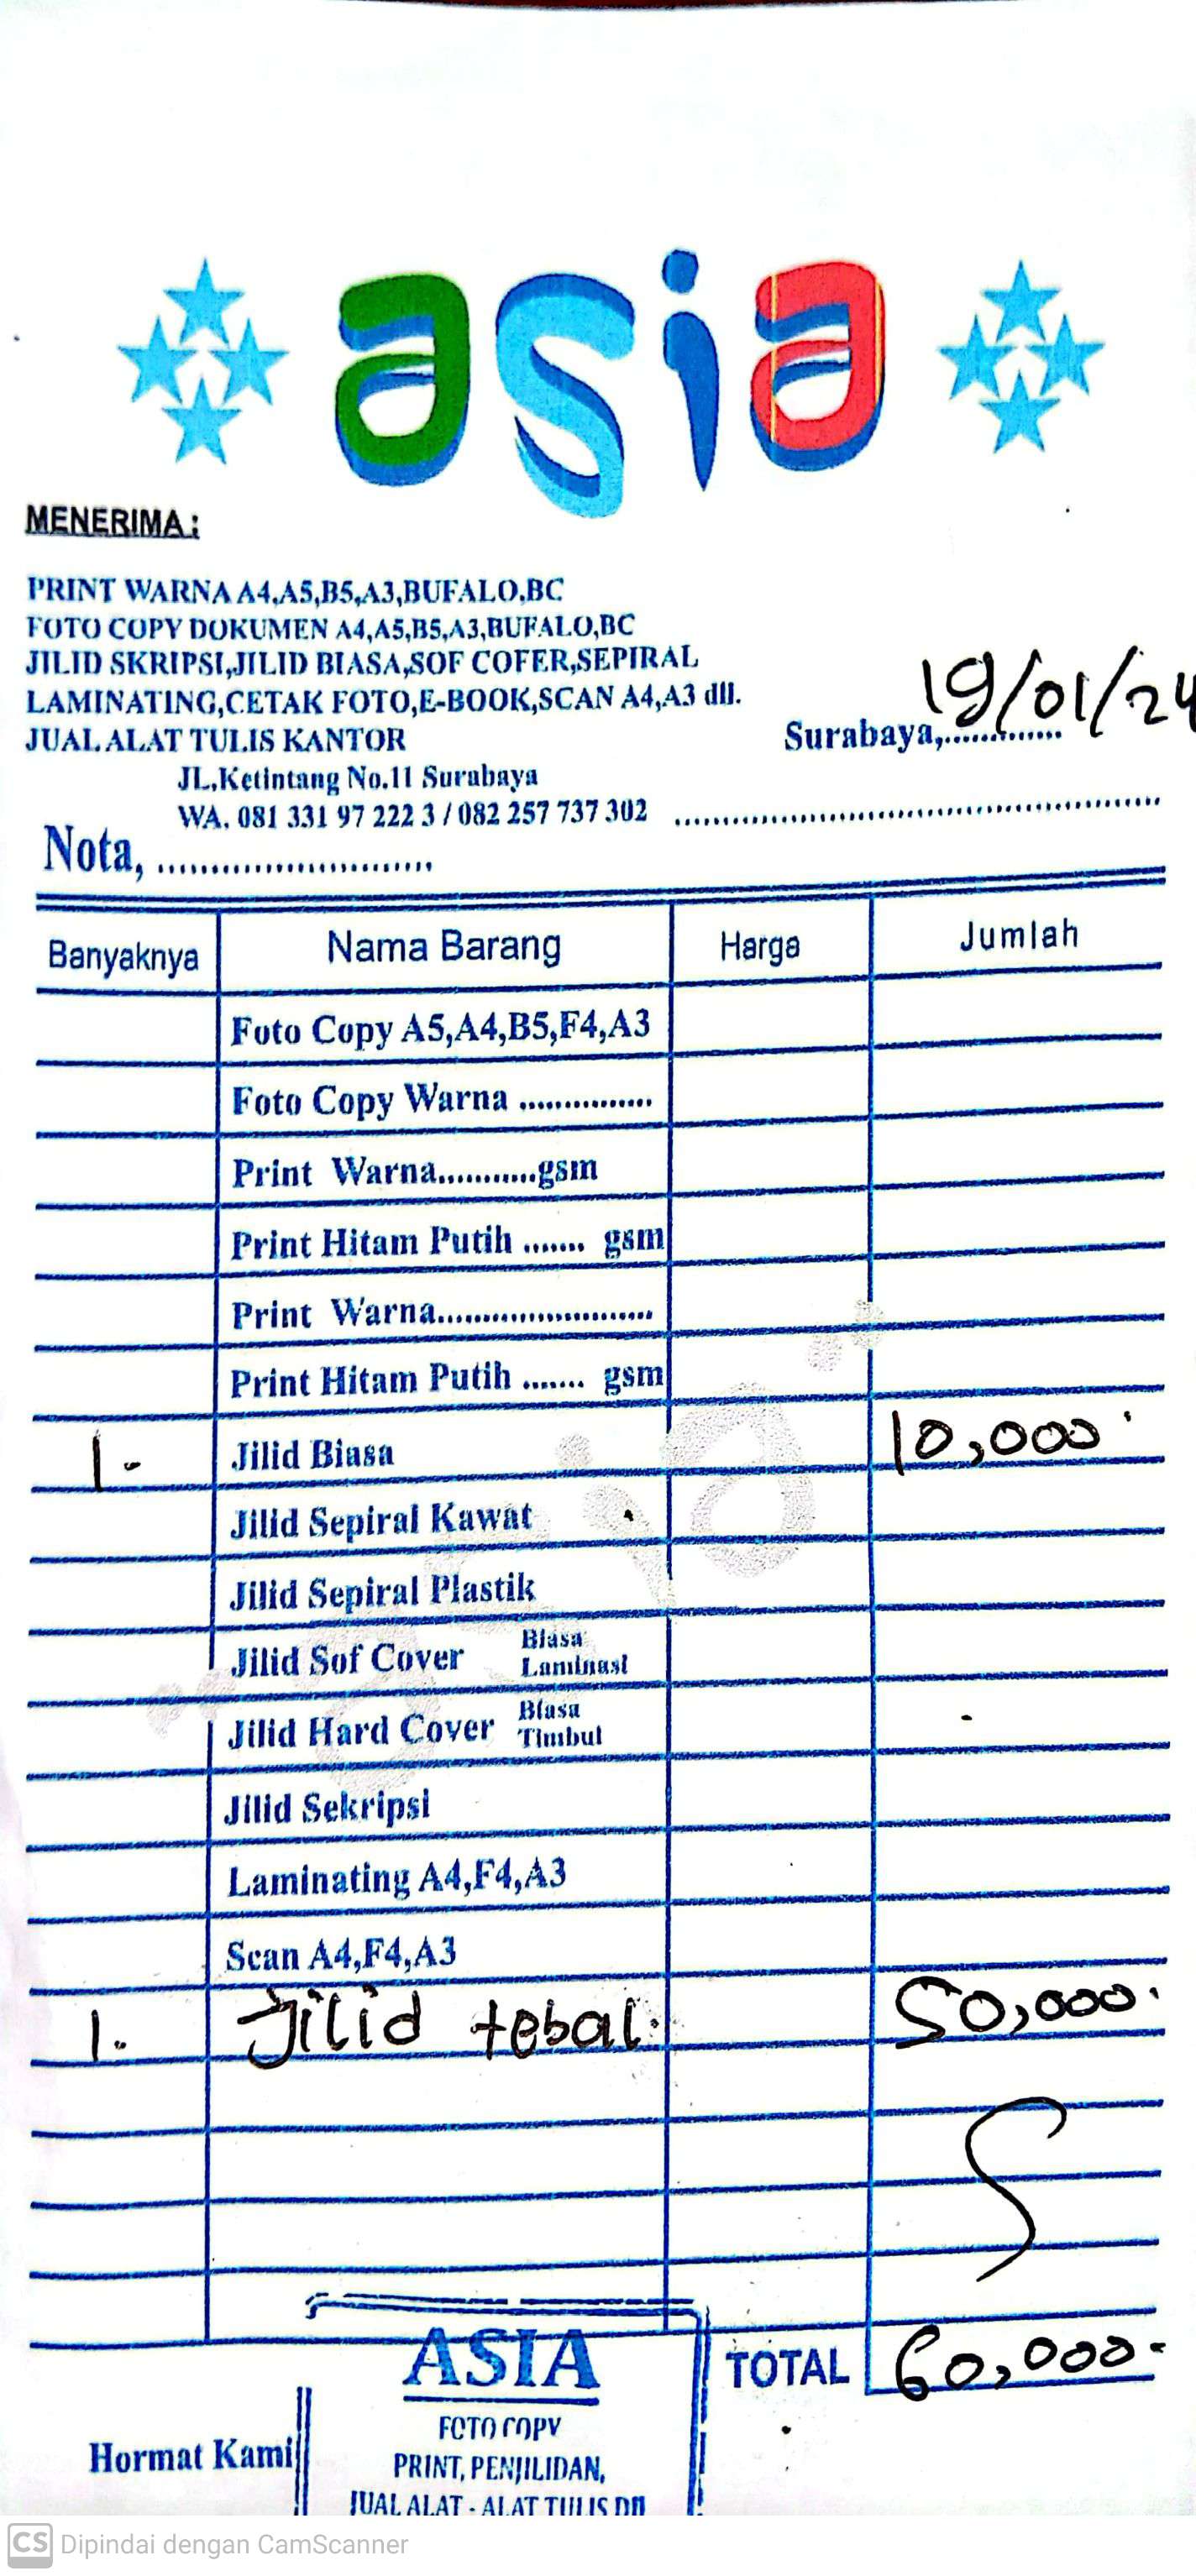 asia
MENERIMA :
PRINT WARNA A4,A5,B5,A3,BUFALO,BC
FOTO COPY DOKUMEN A4,A5,B5,A3,BUFALO,BC
JILID SKRIPSI,JILID BIASA,SOF COFER,SEPIRAL
LAMINATING,CETAK FOTO,E-BOOK,SCAN A4,A3 dll.
JUAL ALAT TULIS KANTOR
Surabaya,.............. 19/01/24
JL.Ketintang No.11 Surabaya
WA. 081 331 97 222 3 / 082 257 737 302
Nota, ............................
Banyaknya Nama Barang Harga Jumlah
Foto Copy A5,A4,B5,F4,A3
Foto Copy Warna ...............
Print Warna...........gsm
Print Hitam Putih ....... gsm
Print Warna.........................
Print Hitam Putih ....... gsm
1.- Jilid Biasa 10,000
Jilid Sepiral Kawat
Jilid Sepiral Plastik
Jilid Sof Cover Biasa Laminasi
Jilid Hard Cover Biasa Timbul
Jilid Sekripsi
Laminating A4,F4,A3
Scan A4,F4,A3
1. Jilid tebal. 50,000.
TOTAL 60,000-
Hormat Kami
ASIA
FOTO COPY
PRINT, PENJILIDAN,
JUAL ALAT - ALAT TULIS Dll
CS Dipindai dengan CamScanner